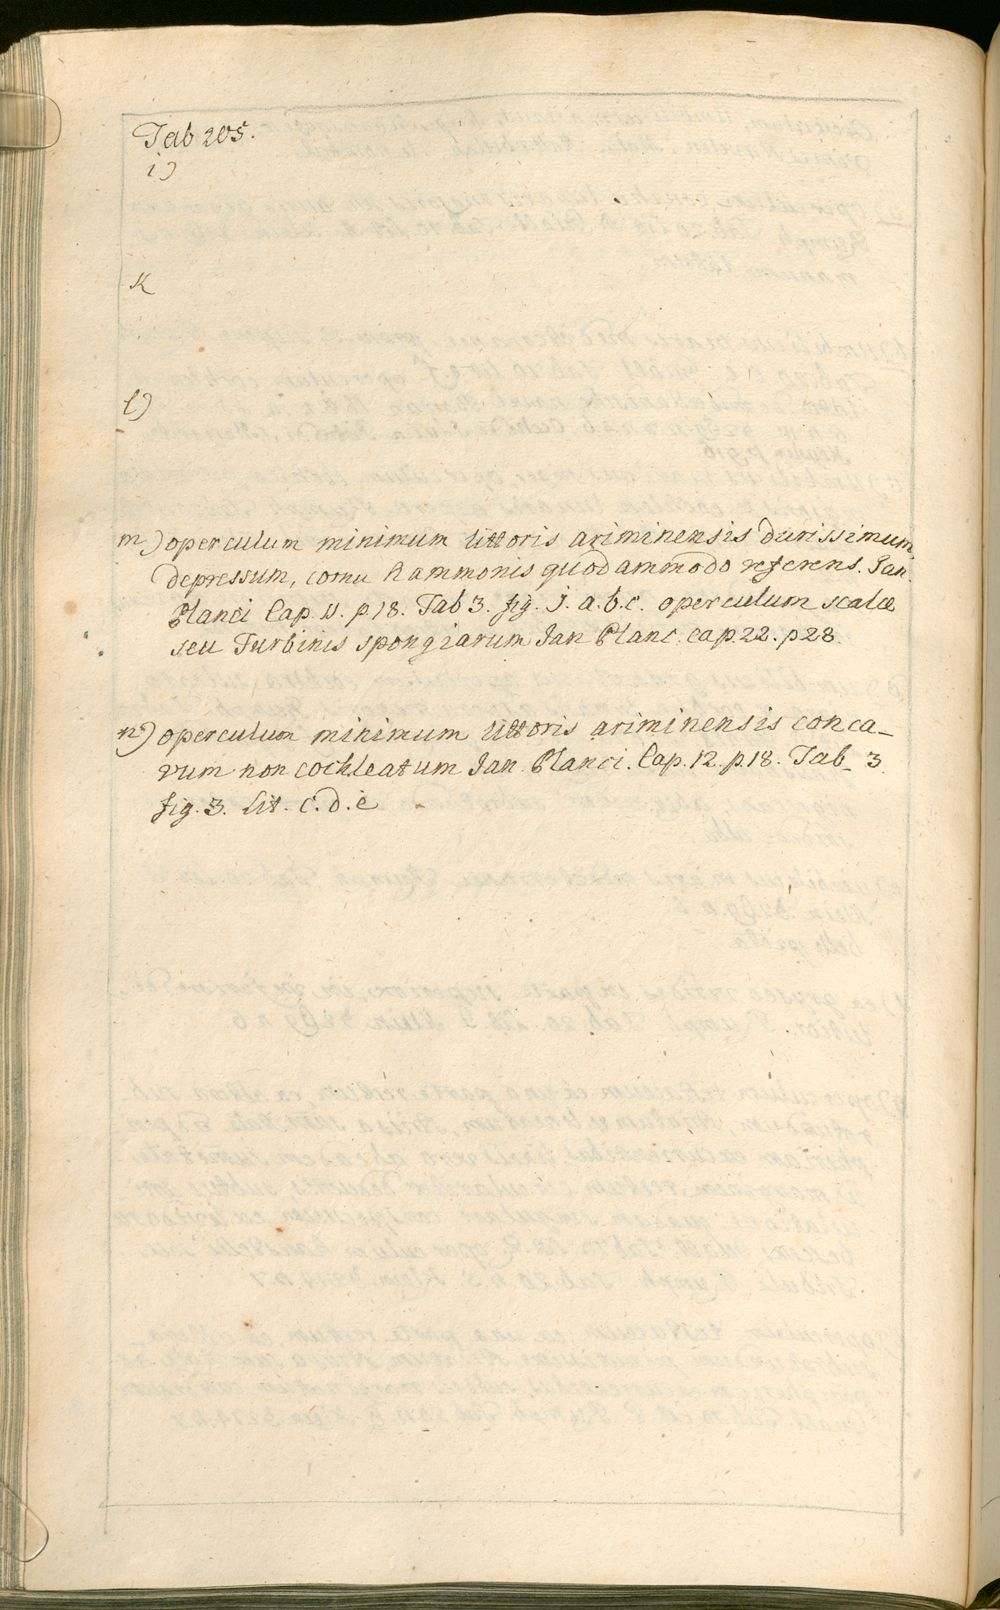 Tab 205.
i)
K
l)
m) operculum minimum littoris ariminensis durissimum
depressum, cornu hammonis quodammodo referens. Jan.
Planci Cap. 11. p. 18. Tab 3. fig. j. a. b. c. operculum scalæ
seu Turbinis spongiarum Jan Planc. cap. 22. p 28.
n) operculum minimum littoris ariminensis conca-
vum non cochleatum Jan Planci. Cap. 12. p. 18. Tab. 3.
fig. 3. Lit. c. d. e